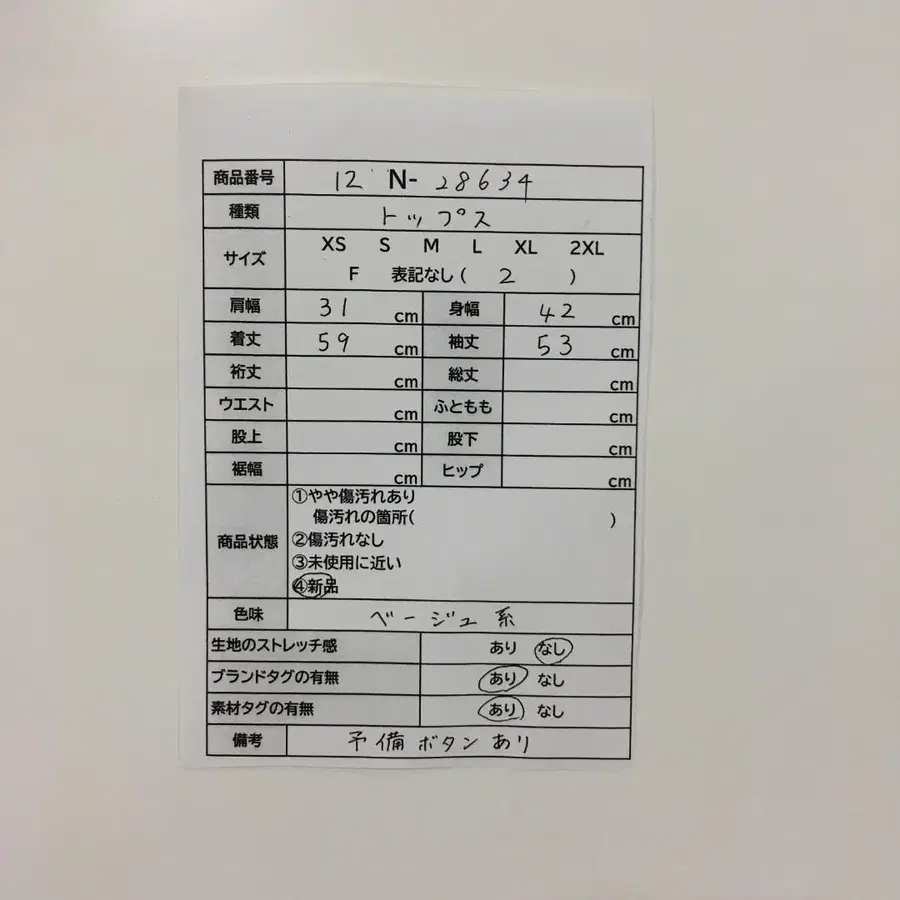 商品番号 12 N- 28634
種類 トップス
サイズ XS S M L XL 2XL
F 表記なし ( 2 )
肩幅 31 cm 身幅 42 cm
着丈 59 cm 袖丈 53 cm
裄丈 cm 総丈 cm
ウエスト cm ふともも cm
股上 cm 股下 cm
裾幅 cm ヒップ cm
商品状態 ①やや傷汚れあり
傷汚れの箇所( )
②傷汚れなし
③未使用に近い
④新品
色味 ベージュ系
生地のストレッチ感 あり なし
ブランドタグの有無 あり なし
素材タグの有無 あり なし
備考 予備ボタンあり